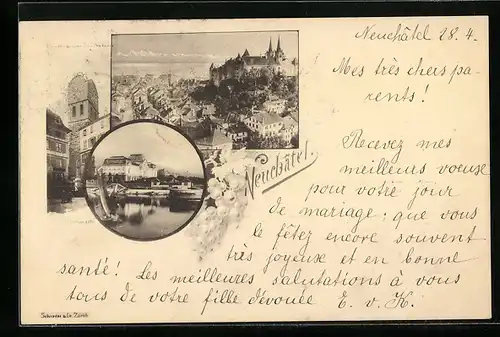 Neuchâtel 28. 4.
Mes très chers pa-
rents!
Neuchâtel.
Recevez mes
meilleurs voeuxe
pour votre jour
de mariage; que vous
le fêtez encore souvent
très joyeuse et en bonne
santé! Les meilleures salutations à vous
tous de votre fille dévouée E. v. K.